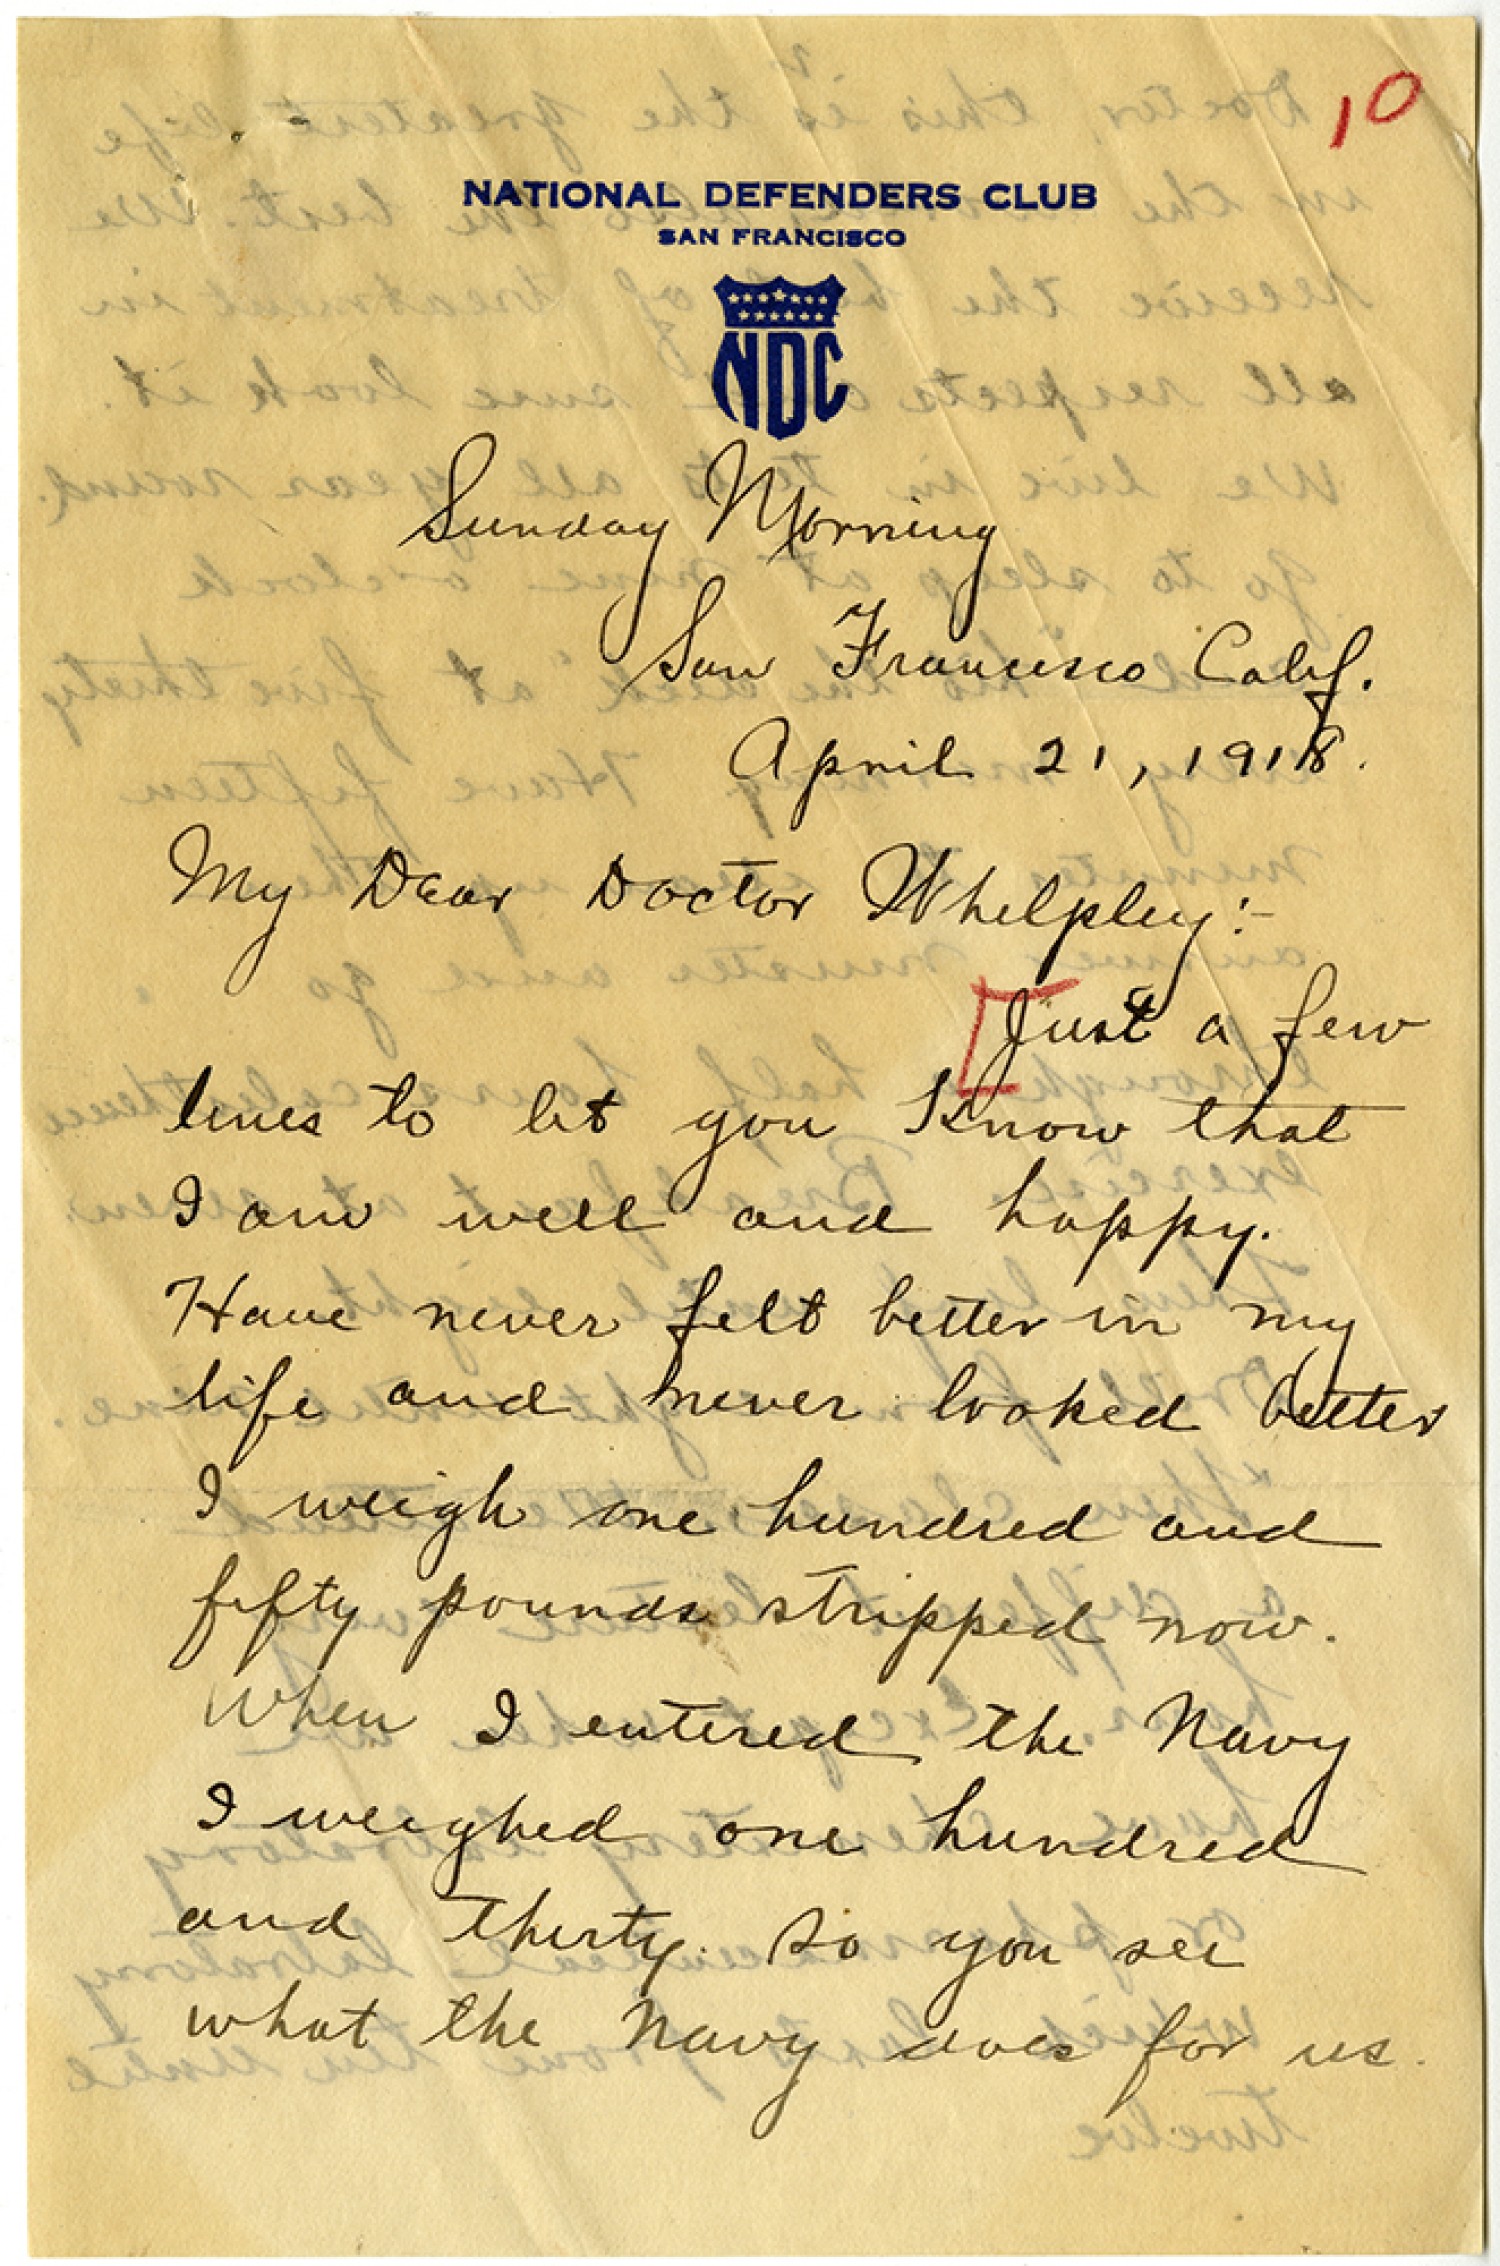 10
NATIONAL DEFENDERS CLUB
SAN FRANCISCO
NDC
Sunday Morning
San Francisco Calif.
April 21, 1918.
My Dear Doctor Whelpley:-
Just a few
lines to let you know that
I am well and happy.
Have never felt better in my
life and never looked better
I weigh one hundred and
fifty pounds stripped now.
When I entered the Navy
I weighed one hundred
and thirty. So you see
what the Navy does for us.